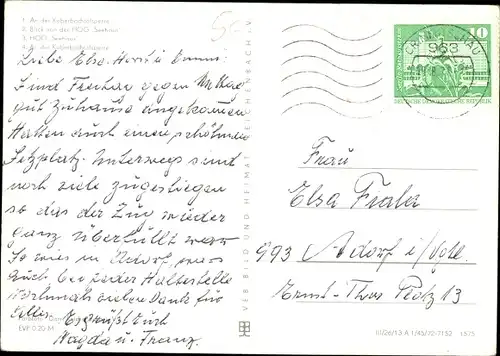 1. An der Koberbachtalsperre
2. Blick von der HOG „Seehaus"
3. HOG „Seehaus"
4. An der Koberbachtalsperre
50
Liebe Elsa, Horst u. Emmi!
Sind Freitag gegen
gut zuhause angekommen
Hatten auch einen schönen
Sitzplatz. Unterwegs sind
noch viele zugestiegen
so das der Zug wieder
ganz überfüllt war
So wies in Adorf, war es
auch bei jeder Haltestelle
Nochmals vielen Dank für
alles. Es grüßt Euch
Magda u. Franz.
EVP 0.20 M
VEB BILD UND HEIMAT REICHENBACH I. V.
963
10
DEUTSCHE DEMOKRATISCHE REPUBLIK
Frau
Elsa
993 Adorf i/Vgtl.
Ernst-Thäl. Platz 13
III/26/13 A 1/45/72-7152 1575